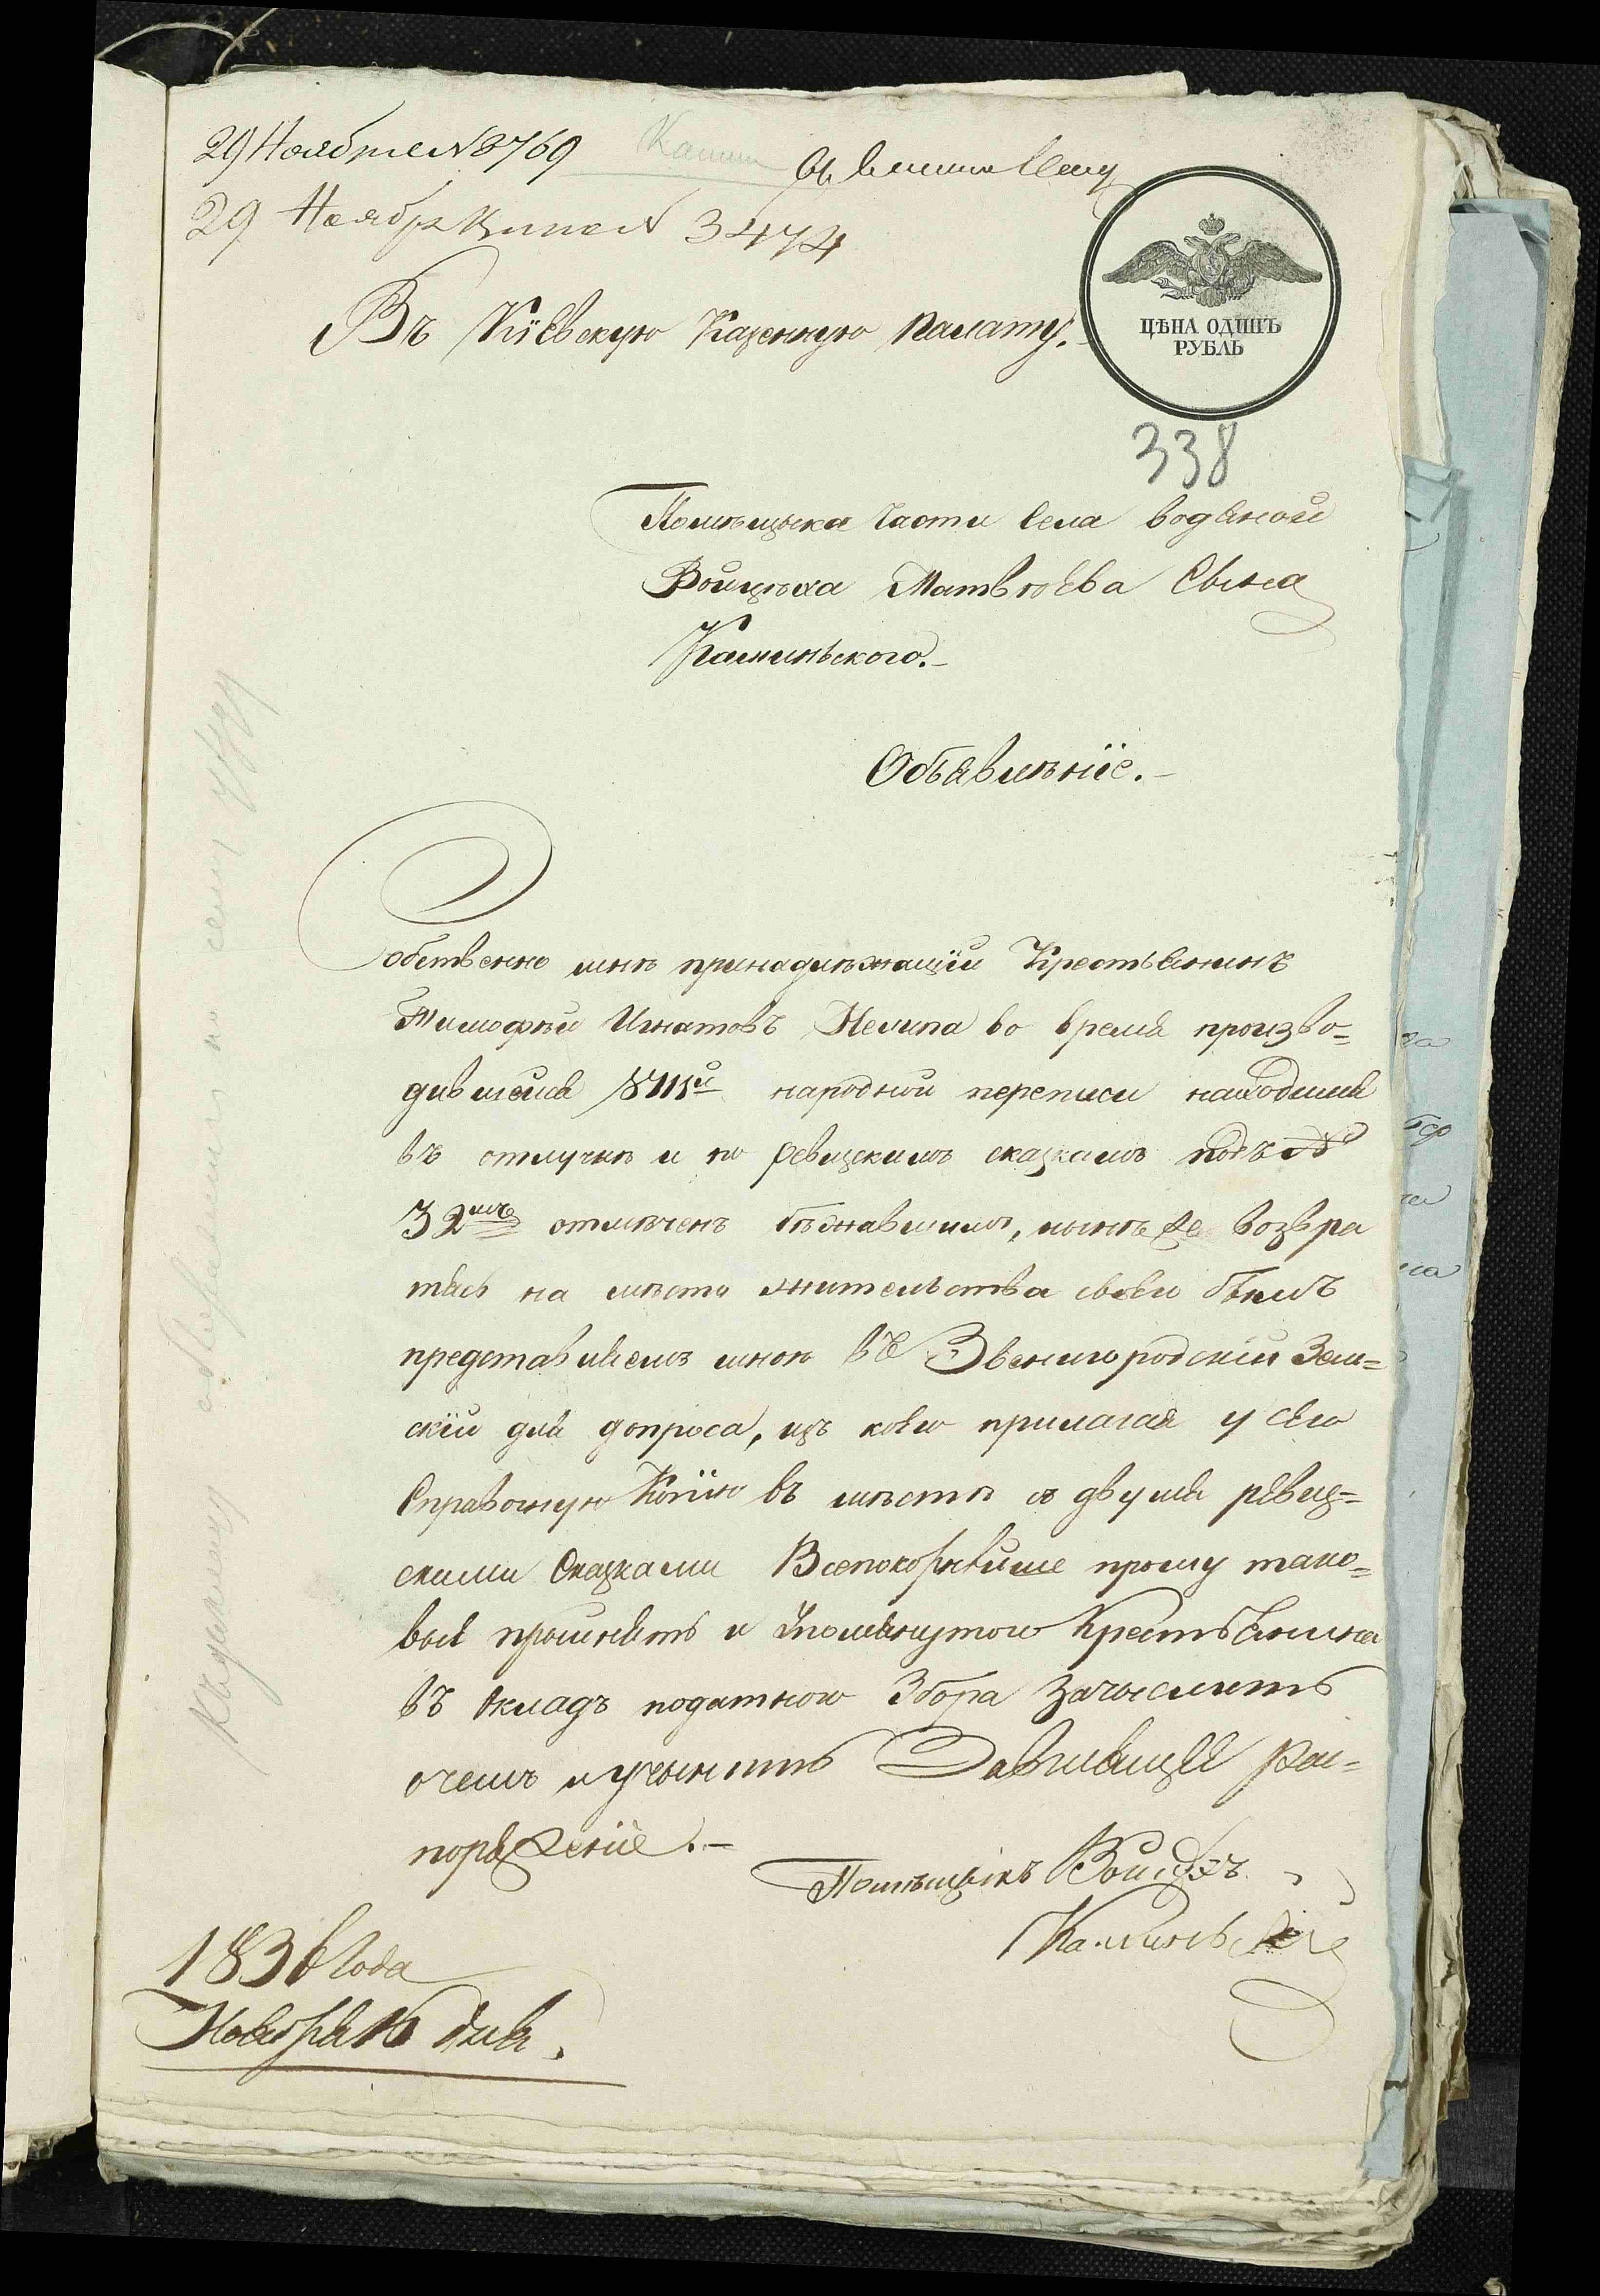 29 Ноября №8769
29 Ноября № 3474
Въ Кіевскую Казенную Палату.
ЦѢНА ОДИНЪ
РУБЛЬ
338
Помѣщыка Части Села водяной
Войцѣха Матвѣева Сына
Каминьского.-
Объявлѣніе.-
Собственно мнѣ принадлѣжащій Крестьянинъ
Тимофѣй Игнатовъ Нелипа во время произво=
дившейся 8й народной переписи находился
въ отлучкѣ и по ревизскимъ сказкамъ подъ №
32мъ отмѣченъ бѣжавшимъ, нынѣ же возвра
тясь на мѣсто жительства своего былъ
представлѣнъ мною въ Звенигородскій Зем=
скій для допроса, изъ коего прилагая у сего
Справочную Копію въ мѣстѣ съ двумя ревиз=
скими Сказками Всепокорнѣйше прошу тако=
выя прыинять и Упомянутого Крестьянина
въ Окладъ податного Збора Зачыслить
очемъ и учынить Завысящее Рас=
поряженіе.-
Помѣщыкъ Войцѣхъ
Каминьскій
1836 Года
Ноября 16 дня.